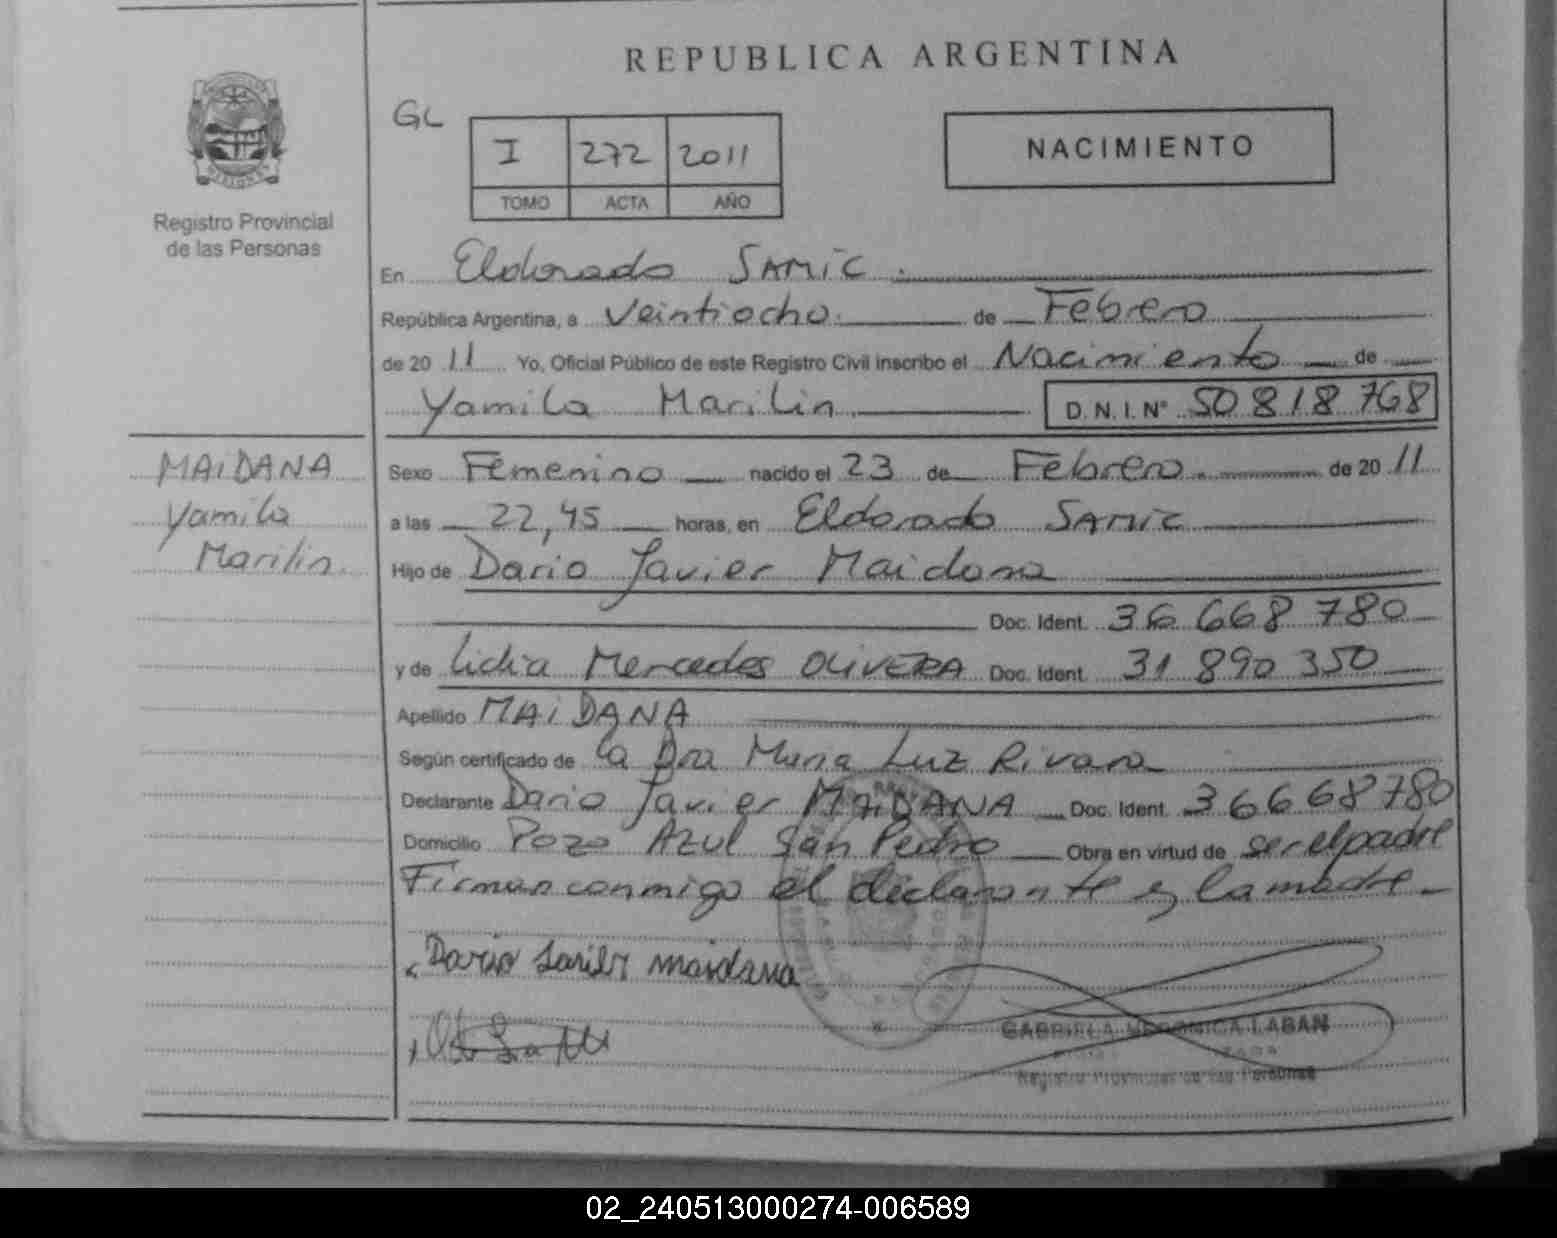 REPUBLICA ARGENTINA
GL
I 272 2011
TOMO ACTA AÑO
NACIMIENTO
Registro Provincial
de las Personas
En Eldorado SAMIC.
República Argentina, a Veintiocho. de Febrero
de 20 11 Yo, Oficial Público de este Registro Civil inscribo el Nacimiento de
Yamila Marilin D.N.I. N° 50 818 768
MAIDANA
Yamila
Marilin.
Sexo Femenino nacido el 23 de Febrero. de 20 11
a las 22,45 horas, en Eldorado SAMIC
Hijo de Dario Javier Maidana
Doc. Ident. 36 668 780
y de Lidia Mercedes OLIVERA Doc. Ident. 31 890 350
Apellido MAIDANA
Según certificado de la Dra Maria Luz Rivara
Declarante Dario Javier MAIDANA Doc. Ident. 36668780
Domicilio Pozo Azul San Pedro Obra en virtud de ser el padre
Firman conmigo el declarante y la madre
Dario Javier maidana
GABRIELA VERONICA LABAN
Registro Provincial de las Personas
02_240513000274-006589